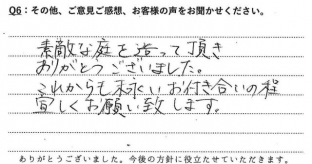 Q6：その他、ご意見ご感想、お客様の声をお聞かせください。
素敵な庭を造って頂き
ありがとうございました。
これからも末永いお付き合いの程
宜しくお願い致します。
ありがとうございました。今後の方針に役立たせていただきます。